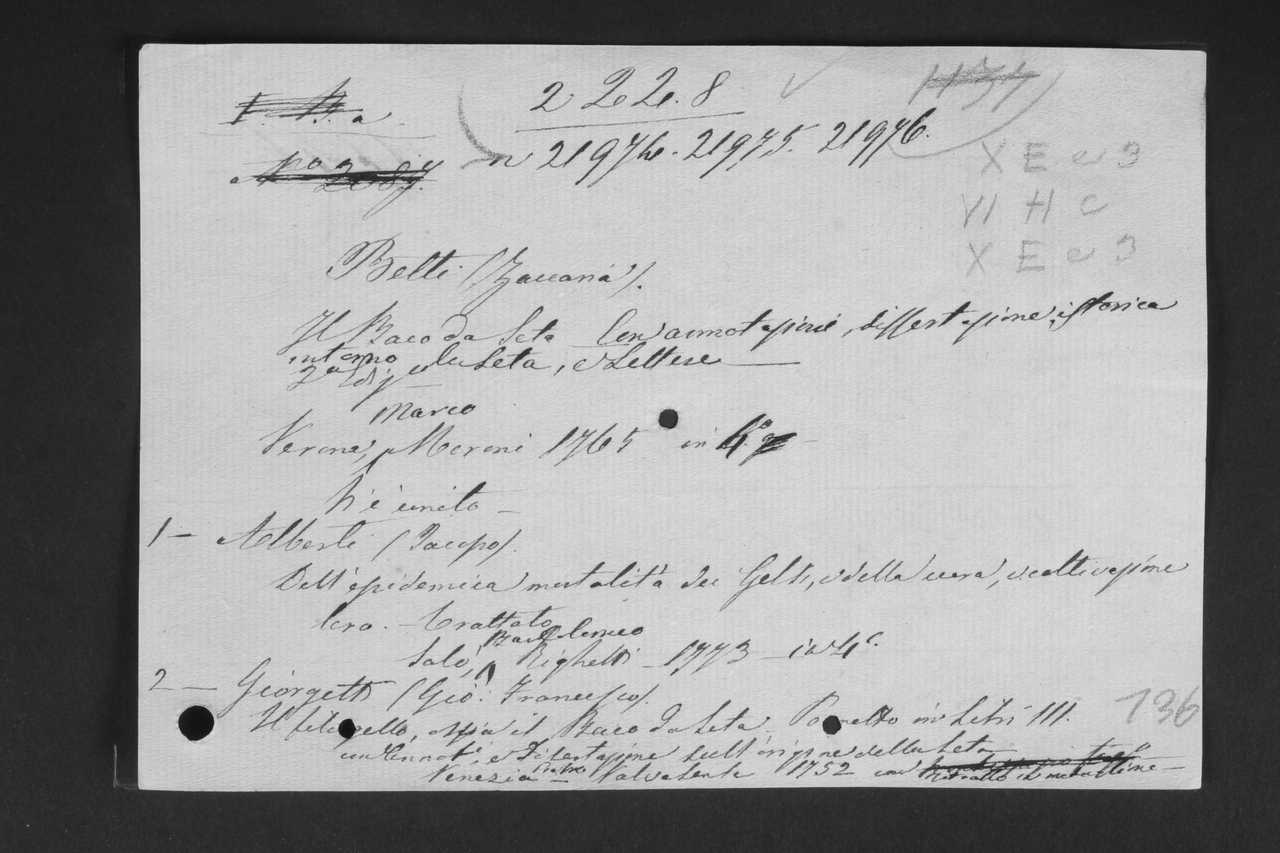 222.8
n 21974. 21975. 21976.
No 2087.
X E e 3
VI H c
X E e 3
Belti (Zaccaria).
Il Baco da Seta Con annotazioni, dissertazione istorica
intorno la Seta, e Lettere
2a Ediz
Marco
Verona, Moroni 1765 in 4o
Vi è unito
1 — Alberti (Jacopo).
Dell'epidemica mortalità dei Gelsi, e della cura, e coltivazione
loro. Trattato
Bartolomeo
Salò, Righetti 1773 in 4o.
2 — Giorgetti (Gio: Francesco).
Il filugello, ossia il Baco da Seta Poemetto in Libri III.
con Annoti, e Disertazione sull'origine della Seta
Venezia Valvasense 1752 con Ritratto in medaglione
136